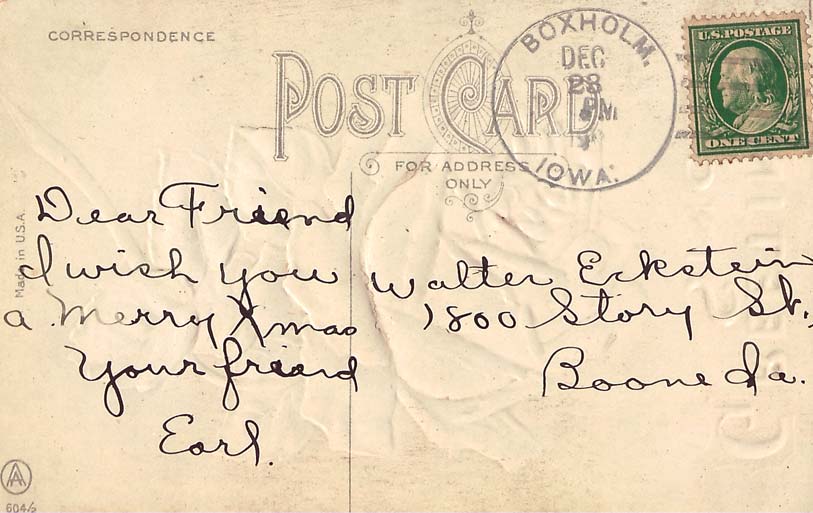 CORRESPONDENCE
POST CARD
FOR ADDRESS
ONLY
BOXHOLM.
DEC
23
PM
IOWA.
U.S. POSTAGE
ONE CENT
Made in U.S.A.
Dear Friend
I wish you
a Merry Xmas
Your friend
Earl.
Walter Eckstein
1800 Story St.,
Boone Ia.
AA
604/2